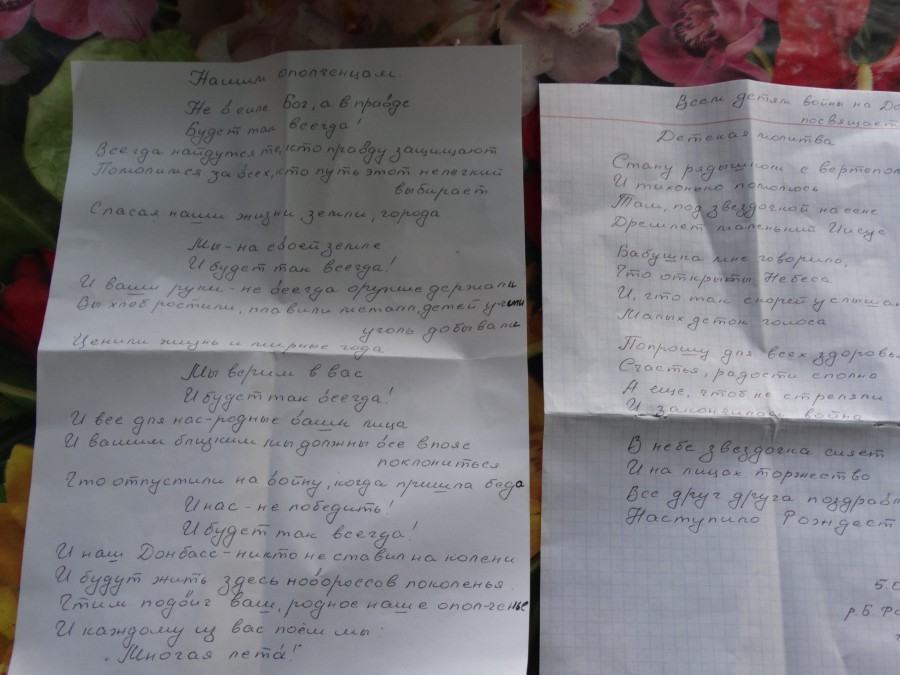 Нашим ополченцам.
Не в силе Бог, а в правде
Будет так всегда!
Всегда найдутся те, кто правду защищают
Помолимся за всех, кто путь этот нелегкий
выбирает
Спасая наши жизни, земли, города
Мы - на своей земле
И будет так всегда!
И ваши руки - не всегда оружие держали
Вы хлеб ростили, плавили металл, детей учили
уголь добывали
Ценили жизнь и мирные года
Мы верим в вас
И будет так всегда!
И все для нас - родные ваши лица
И вашим близким мы должны все в пояс
поклониться
Что отпустили на войну, когда пришла беда
И нас - не победить!
И будет так всегда!
И наш Донбасс - никто не ставил на колени
И будут жить здесь новороссов поколенья
Чтим подвиг ваш, родное наше ополченье
И каждому из вас поём мы:
"Многая лета!"
Всем детям войны на До
посвящает
Детская молитва
Стану рядышком с вертепом
И тихонько помолюсь
Там, под звездочкой на сене
Дремлет маленький Иисус
Бабушка мне говорила,
Что открыты Небеса
И, что так скорей услышан
Малых деток голоса
Попрошу для всех здоровья
Счастья, радости сполна
А еще, чтоб не стреляли
И закончилась война
В небе звездочка сияет
И на лицах торжество
Все друг друга поздравл
Наступило Рождест
5.
р.Б.